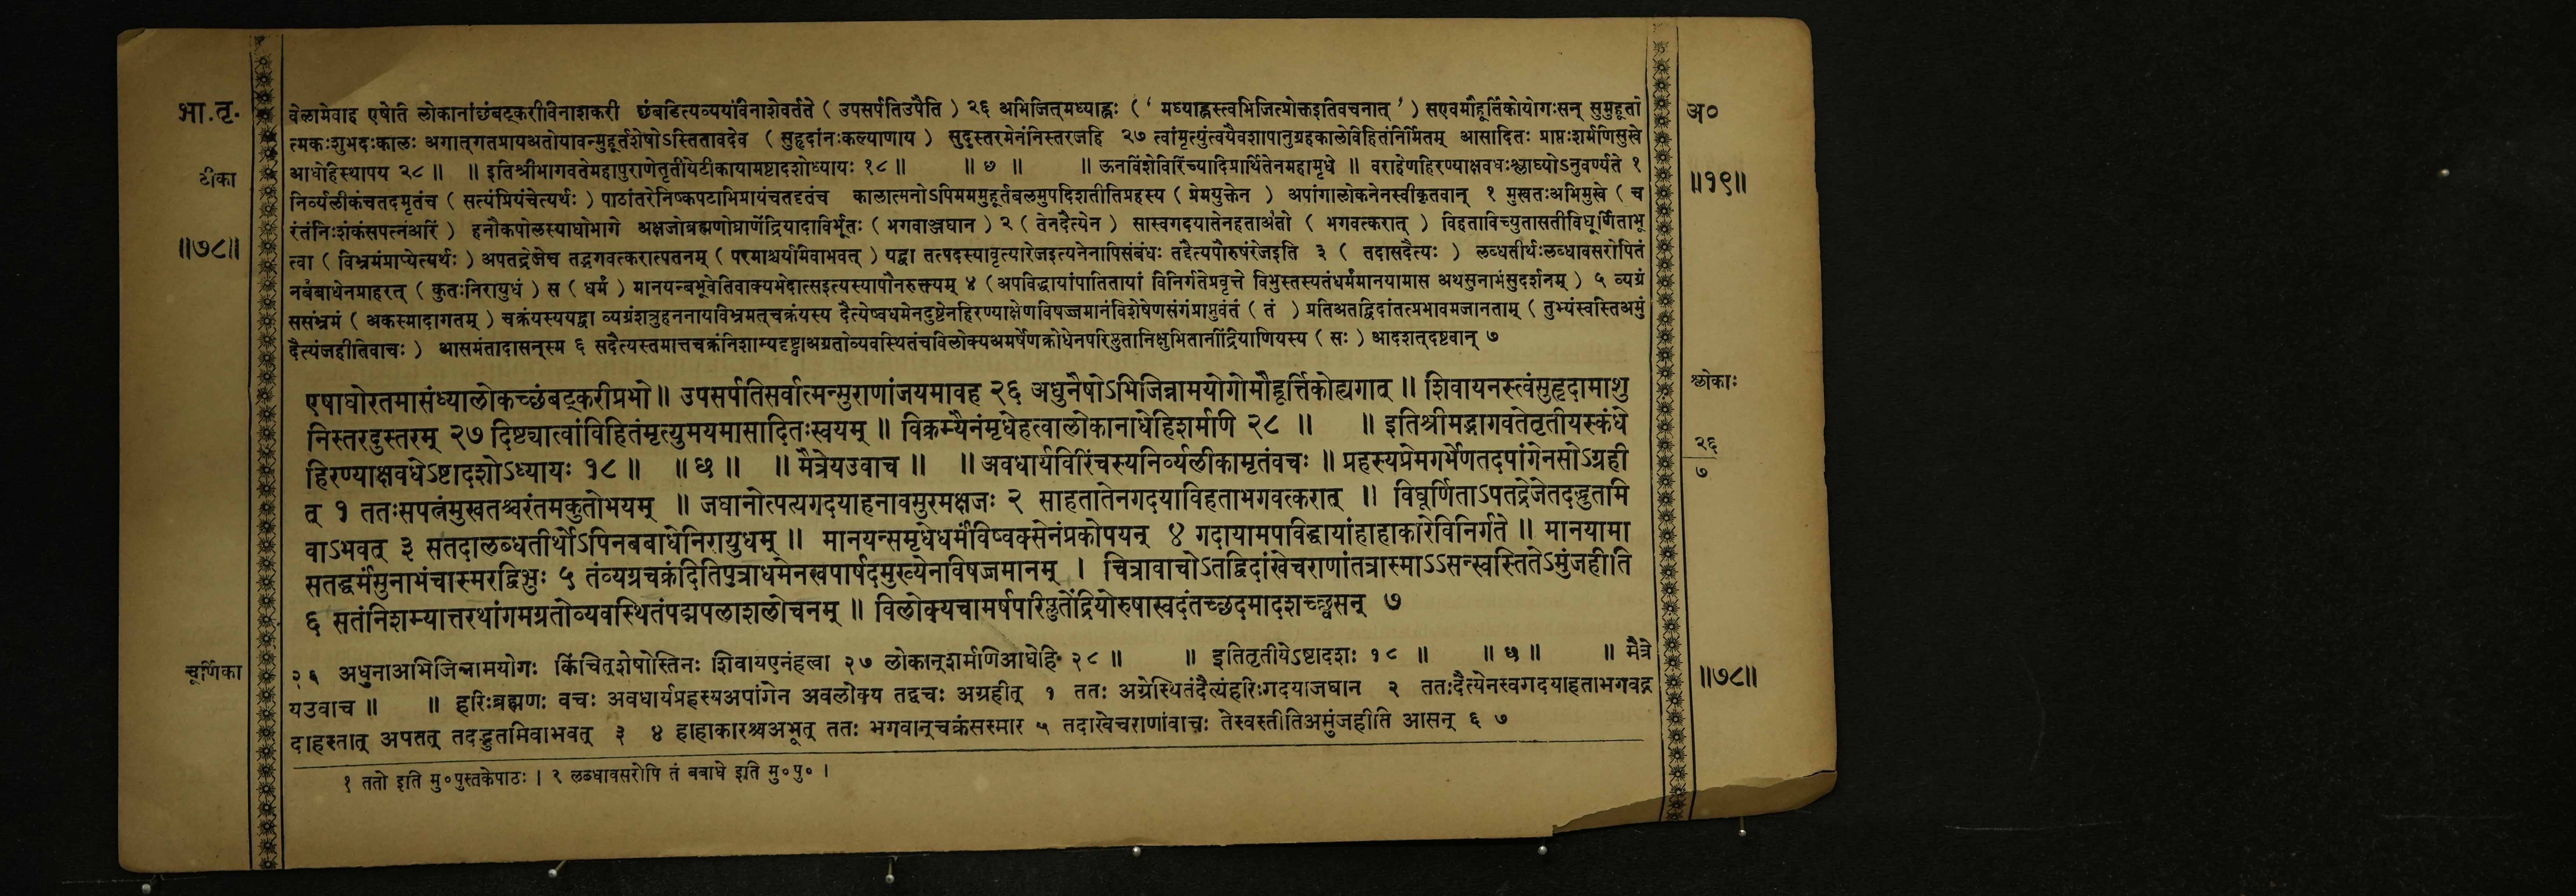 भा.तृ.
टीका
॥७८॥
वेलामेवाह एषेति लोकानांछंबट्करीविनाशकरी छंबडित्यव्ययांविनाशेवर्तते ( उपसर्पतिउपैति ) २६ अभिजित्मध्याह्नः ( ' मध्याह्नस्त्वभिजित्प्रोक्तइतिवचनात् ' ) सएवमौहूर्तिकोयोगःसन् सुमुहूर्ता
त्मकःशुभदःकालः अगात्‌गतप्रायअतोयावन्मुहूर्तशेषोऽस्तितावदेव ( सुहृदांनःकल्याणाय ) सुदुस्तरमेनंनिस्तरजहि २७ त्वांमृत्युंत्वयैवशापानुग्रहकालेविहितंनिर्मितम् आसादितः प्राप्तःशर्मणिसुखे
आधेहिस्थापय २८ ॥ ॥ इतिश्रीभागवतेमहापुराणेतृतीयेटीकायामष्टादशोध्यायः १८ ॥ ॥ ७ ॥ ॥ ऊनविंशेविरिंच्यादिप्रार्थितेनमहामृधे ॥ वराहेणहिरण्याक्षवधःश्लाघ्योऽनुवर्ण्यते १
निर्व्यलीकंचतदमृतंच ( सत्यंप्रियंचेत्यर्थः ) पाठांतरेनिष्कपटाभिप्रायंचतदृतंच कालात्मनोऽपिममममुहूर्तबलमुपदिशतीतिप्रहस्य ( प्रेमयुक्तेन ) अपांगालोकनेनस्वीकृतवान् १ मुखतःअभिमुखे ( च
रंतंनिःशंकंसपत्नंअरिं ) हनौकपोलस्याधोभागे अक्षजोब्रह्मणोघ्राणेंद्रियादाविर्भूतः ( भगवाञ्जघान ) २ ( तेनदैत्येन ) सास्वगदयातेनहताअंतो ( भगवत्करात् ) विहताविच्युतासतीविघूर्णिताभू
त्वा ( विभ्रमंप्राप्येत्यर्थः ) अपतद्रेजेच तद्भगवत्करात्पतनम् ( परमाश्चर्यामिवाभवत् ) यद्वा तत्पदस्यावृत्यारेजइत्यनेनापिसंबंधः तद्दैत्यपौरुषंरेजइति ३ ( तदासदैत्यः ) लब्धतीर्थःलब्धावसरोपितं
नबंबाधेनप्राहरत् ( कुतःनिरायुधं ) स ( धर्मं ) मानयन्बभूवेतिवाक्यभेदात्सइत्यस्यापौनरुक्त्यम् ४ ( अपविद्धायांपातितायां विनिर्गतेप्रवृत्ते विभुस्तस्यतंधर्मंमानयामास अथसुनाभंसुदर्शनम् ) ५ व्यग्रं
ससंभ्रमं ( अकस्मादागतम् ) चक्रंयस्ययद्वा व्यग्रंशत्रुहननायविभ्रमत्‌चक्रंयस्य दैत्येष्वधमेनदुष्टेनहिरण्याक्षेणविषज्जमानंविशेषेणसंगंप्राप्नुवंतं ( तं ) प्रतिअतद्विदांतत्प्रभावमजानताम् ( तुभ्यंस्वस्तिअमुं
दैत्यंजहीतिवाचः ) आसमंतादासन्‌स्म ६ सदैत्यस्तमात्तचक्रंनिशाम्यदृष्ट्वाअग्रतोव्यवस्थितंचविलोक्यअमर्षेणक्रोधेनपरिप्लुतानिक्षुभितानींद्रियाणियस्य ( सः ) आदशत्‌दष्टवान् ७
एषाघोरतमासंध्यालोकच्छंबट्करीप्रभो ॥ उपसर्पतिसर्वात्मन्सुराणांजयमावह २६ अधुनैषोऽभिजिन्नामयोगोमौहूर्त्तिकोह्यगात् ॥ शिवायनस्त्वंसुहृदामाशु
निस्तरदुस्तरम् २७ दिष्ट्यात्वांविहितंमृत्युमयमासादितःस्वयम् ॥ विक्रम्यैनंमृधेहत्वालोकानाधेहिशर्मणि २८ ॥ ॥ इतिश्रीमद्भागवतेतृतीयस्कंधे
हिरण्याक्षवधेऽष्टादशोऽध्यायः १८ ॥ ॥ छ ॥ ॥ मैत्रेयउवाच ॥ ॥ अवधार्यविरिंचस्यनिर्व्यलीकामृतंवचः ॥ प्रहस्यप्रेमगर्भेणतदपांगेनसोऽग्रही
त् १ ततःसपत्नंमुखतश्चरंतमकुतोभयम् ॥ जघानोत्पत्यगदयाहनावसुरमक्षजः २ साहतातेनगदयाविहताभगवत्करात् ॥ विघूर्णिताऽपतद्रेजेतदद्भुतमि
वाऽभवत् ३ सतदालब्धतीर्थोऽपिनबबाधेनिरायुधम् ॥ मानयन्समृधेधर्मंविष्वक्सेनंप्रकोपयन् ४ गदायामपविद्धायांहाहाकारेविनिर्गते ॥ मानयामा
सतद्धर्मंसुनाभंचास्मरद्विभुः ५ तंव्यग्रचक्रंदितिपुत्राधमेनस्वपार्षदमुख्येनविषज्जमानम् । चित्रावाचोऽतद्विदांखेचराणांतत्रास्माऽऽसन्स्वस्तितेऽमुंजहीति
६ सतंनिशम्यात्तरथांगमग्रतोव्यवस्थितंपद्मपलाशलोचनम् ॥ विलोक्यचामर्षपरिप्लुतेंद्रियोरुषास्वदंतच्छदमादशच्छ्वसन् ७
चूर्णिका
२६ अधुनाआभिजिन्नामयोगः किंचित्‌शेषोस्तिनः शिवायएनंहत्वा २७ लोकान्‌शर्मणिआधेहि २८ ॥ ॥ इतितृतीयेऽष्टादशः १८ ॥ ॥ छ ॥ ॥ मैत्रे
यउवाच ॥ ॥ हरिःब्रह्मणः वचः अवधार्यप्रहस्यअपांगेन अवलोक्य तद्वचः अग्रहीत् १ ततः अग्रेस्थितंदैत्यंहरिःगदयाजघान २ ततःदैत्येनस्वगदयाहताभगवद्ग
दाहस्तात् अपतत् तदद्भुतमिवाभवत् ३ ४ हाहाकारश्चअभूत् ततः भगवान्‌चक्रंसस्मार ५ तदाखेचराणांवाचः तेस्वस्तीतिअमुंजहीति आसन् ६ ७
१ ततो इति मु०पुस्तकेपाठः । २ लब्धावसरोपि तं बबाधे इति मु०पु० ।
अ०
॥१९॥
श्लोकाः
२६
७
॥७८॥